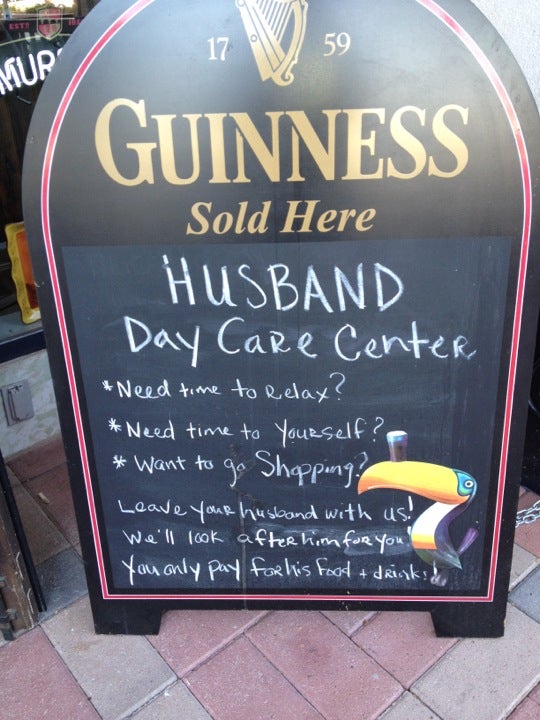 EST!
MUR
17 59
GUINNESS
Sold Here
HUSBAND
Day Care Center
* Need time to Relax?
* Need time to Yourself?
* Want to go Shopping?
Leave your husband with us!
We'll look after him for you!
You only pay for his food + drinks!